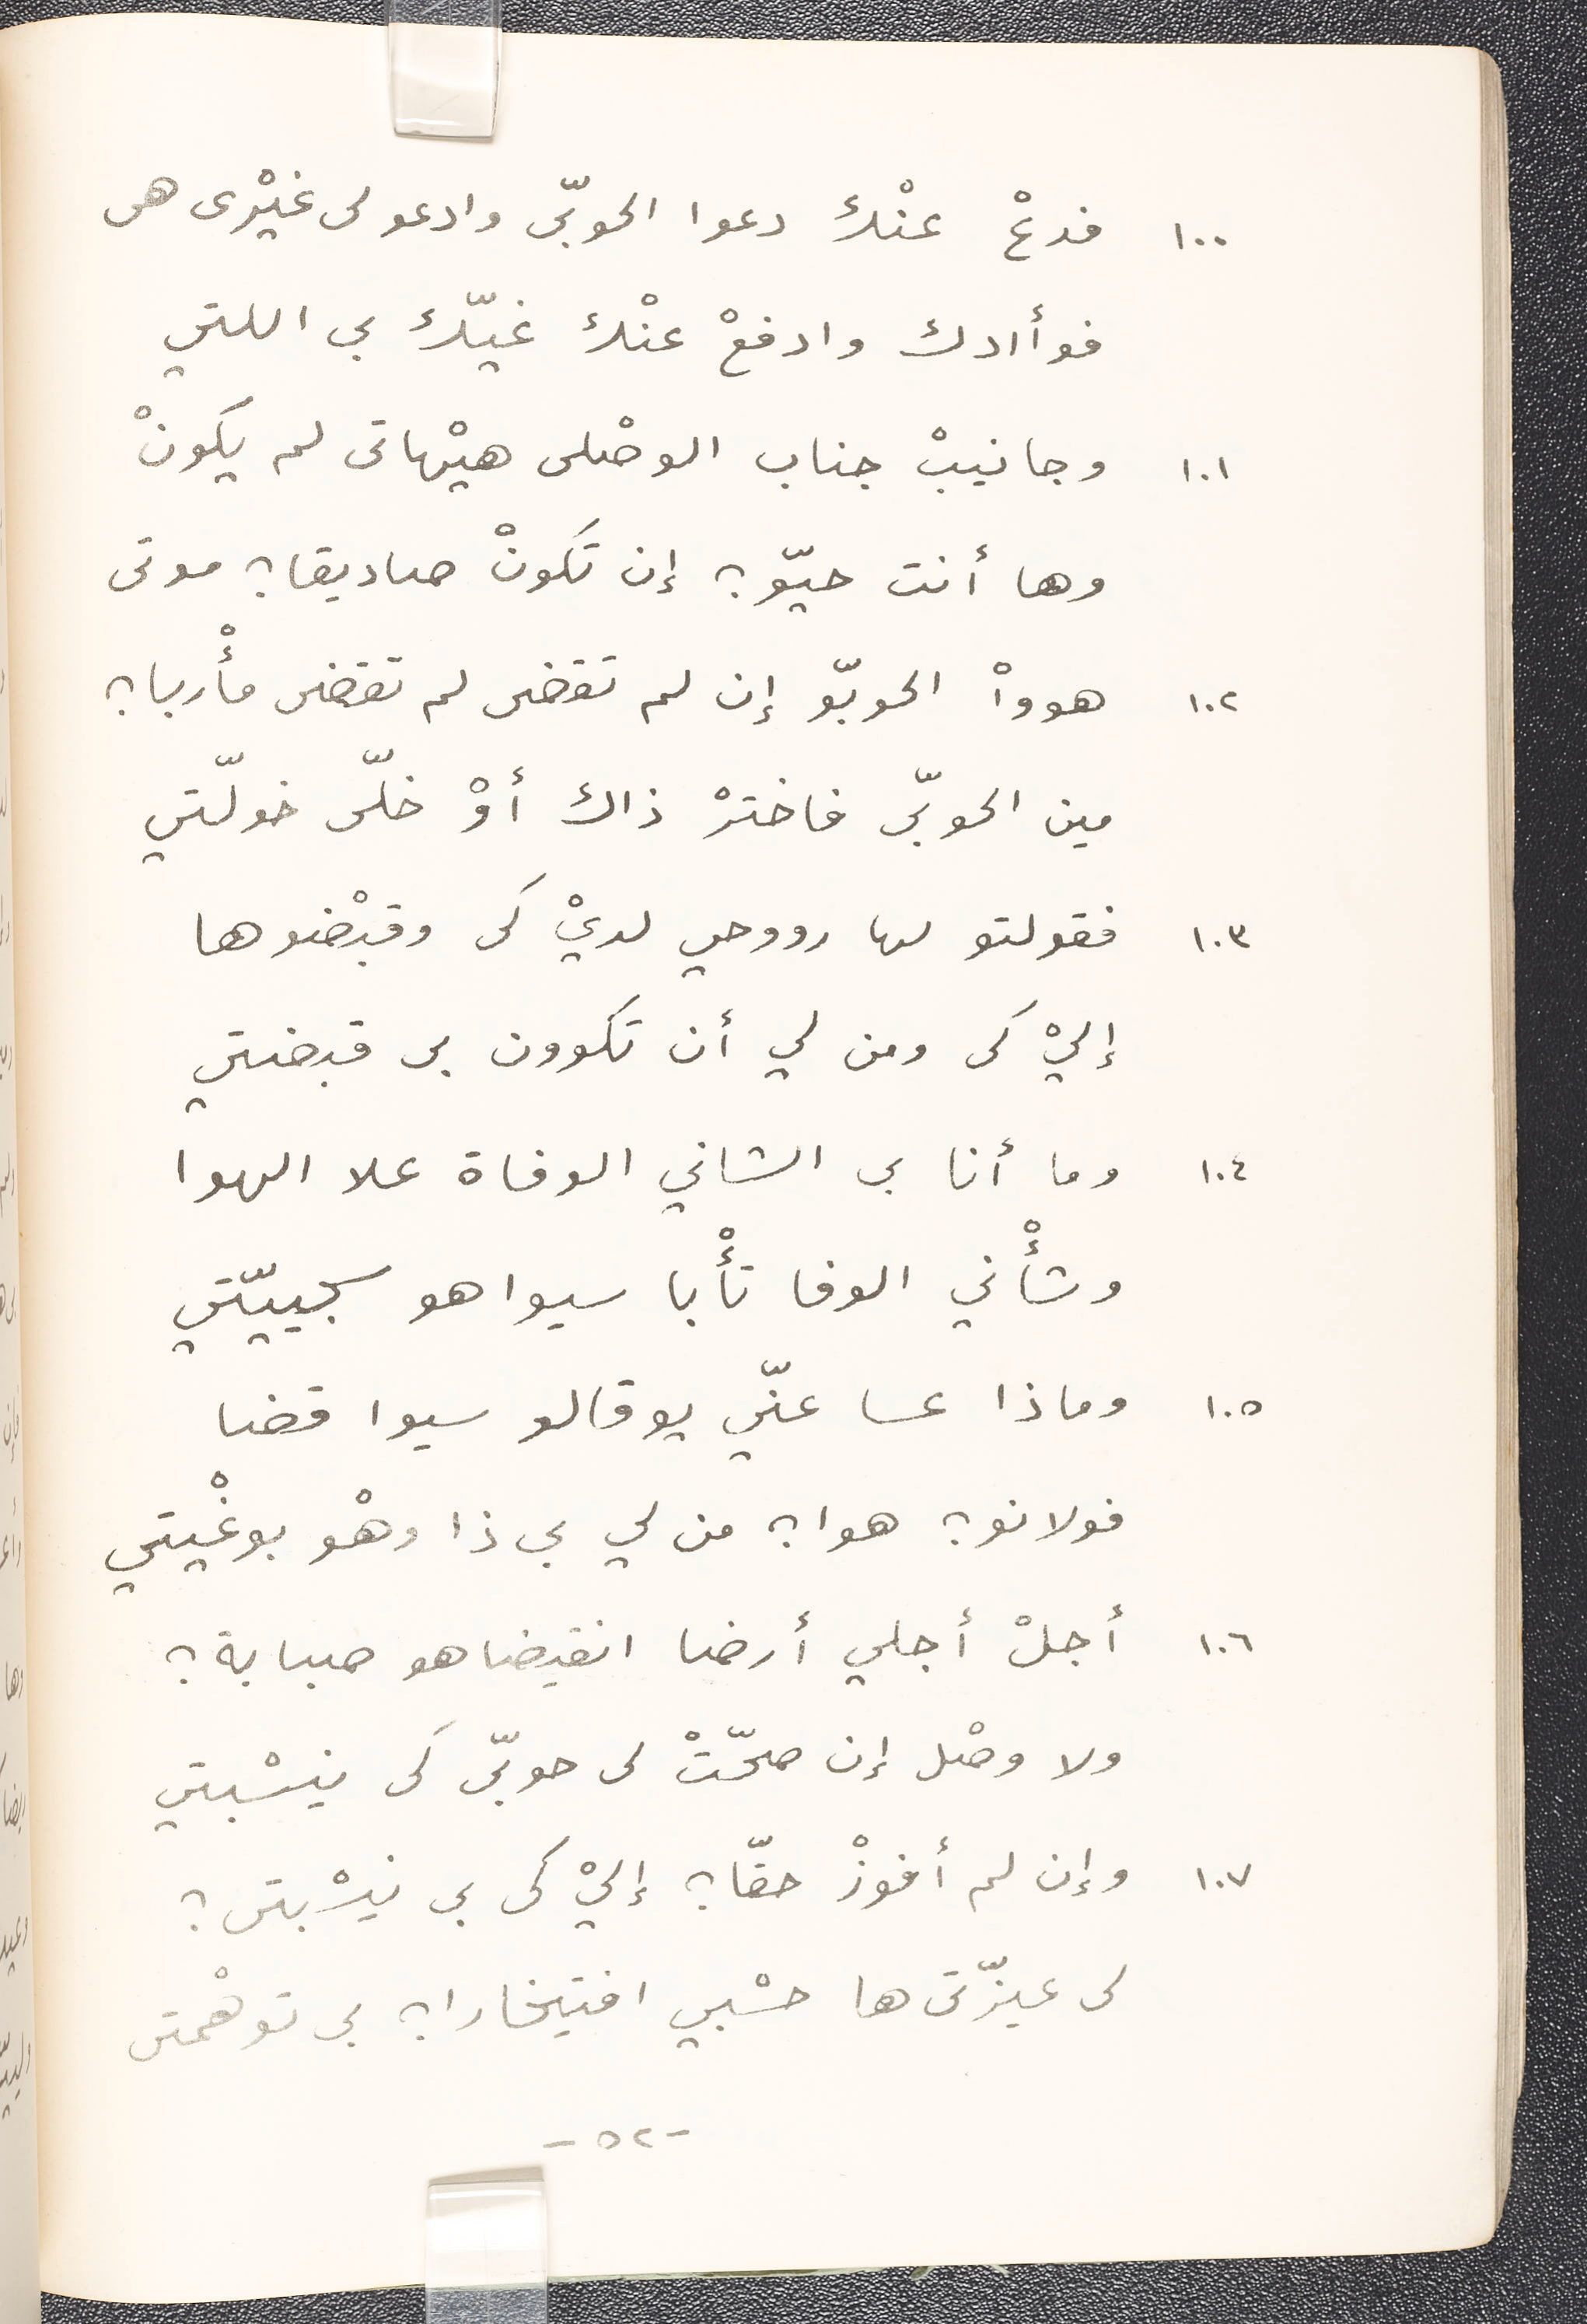 ١٠٠ فدعْ عنْك دعوا الحوبّى وادعو لى غيْرى هى
فوأادك وادفعْ عنْك غيّك بى اللتي
١٠١ وجانيبْ جناب الوصْلى هيْهاتى لم يكونْ
وها أنت حيّو؟ إن تكونْ صاديقا؟ موتى
١٠٢ هوواْ الحوبّو إن لم تقضى لم تقضى مأْربا؟
مين الحوبّى فاخترْ ذاك أوْ خلّى خولّتي
١٠٣ فقولتو لها رووحي لديْ كى وقبْضوها
إليْ كى ومن لي أن تكوون بى قبضتي
١٠٤ وما أنا بى الشاني الوفاة علا الهوا
وشأْني الوفا تأْبا سيواهو سجيييّتي
١٠٥ وماذا عسا عنّي يوقالو سيوا قضا
فولانو؟ هوا؟ من لي بى ذا وهْو بوغْيتي
١٠٦ أجلْ أجلي أرضا انقيضاهو صبابة؟
ولا وصْل إن صحّتْ لى حوبّى كى نيسْبتي
١٠٧ وإن لم أفوزْ حقّا؟ إليْ كى بى نيسْبتى؟
لى عيزّتى ها حسْبي افتيخارا؟ بى توهْمتى
-٥٢-